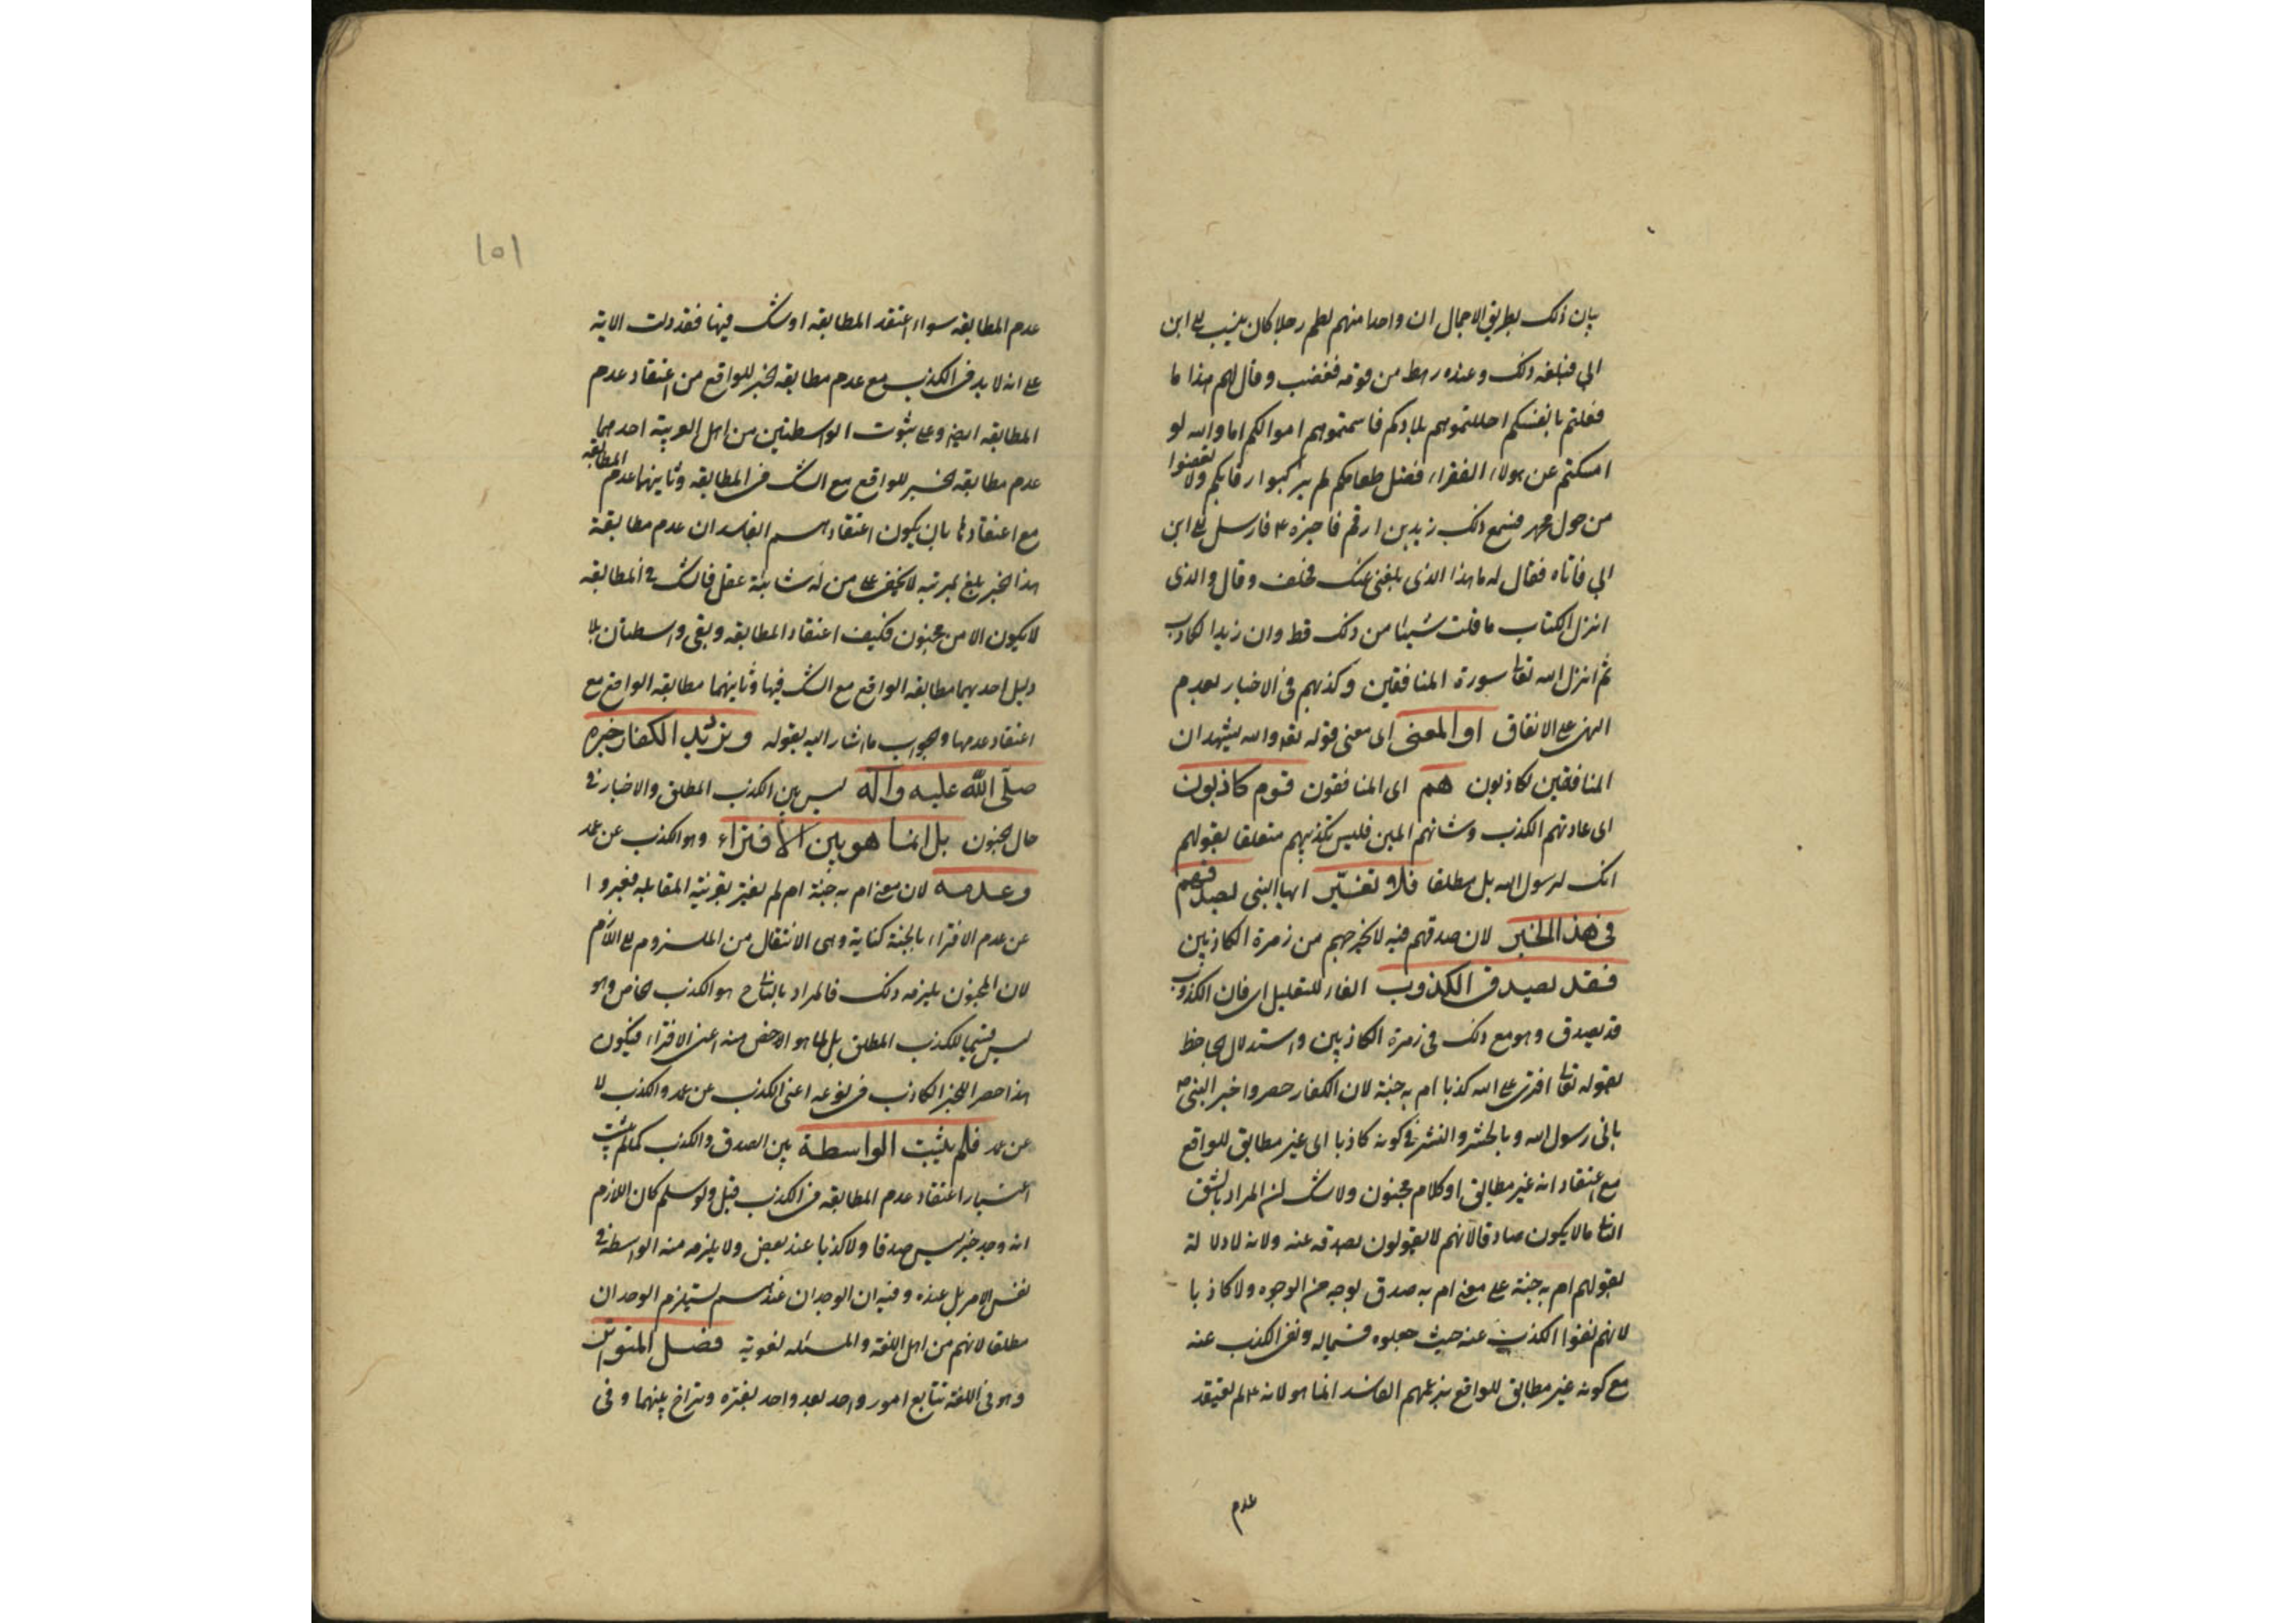 بيان ذلك بطريق الاجمال ان واحدا منهم لطم رجلا كان ينسب الى ابن
ابي فبلغه ذلك وعنده رهط من قومه فغضب وقال لهم هذا ما
فعلتم بانفسكم احللتموهم بلادكم قاسمتموهم اموالكم اما والله لو
امسكتم عن هولاء الفقراء فضل طعامكم لم يركبوا رقابكم ولانفضوا
من حول محمد فسمع ذلك زيد بن ارقم فاخبره ۴ فارسل الى ابن
ابي فاتاه فقال له ما هذا الذى بلغنى عنك فحلف وقال والذى
انزل الكتاب ما قلت شيئا من ذلك قط وان زيدا لكاذب
ثم انزل الله تعا سورة المنافقين وكذبهم فى الاخبار بعدم
النهى على الانفاق او المعنى اى معنى قوله تعه والله يشهد ان
المنافقين لكاذبون هم اى المنافقون قوم كاذبون
اى عادتهم الكذب وشانهم المين فليس تكذيبهم متعلقا بقولهم
انك لرسول الله بل مطلقا فلا تغتر ايها النبى بصدقهم
فى هذا الخبر لان صدقهم فيه لا يخرجهم من زمرة الكاذبين
فقد يصدق الكذوب الفاء للتعليل اى فان الكذوب
قد يصدق وهو مع ذلك فى زمرة الكاذبين واستدلال الجاحظ
بقوله تعا افترى على الله كذبا ام به جنة لان الكفار حصروا خبر النبى ص
بانى رسول الله وبالحشر والنشر فى كونه كاذبا اى غير مطابق للواقع
مع اعتقاد انه غير مطابق او كلام مجنون ولا شك ان المراد بالشق
الثا ما لا يكون صادقا لانهم لا يقولون بصدقه عنه ولانه لا دلالة
لقولهم ام به جنة على معنى ام به صدق بوجه من الوجوه ولا كاذبا
لانهم نفوا الكذب عنه حيث جعلوه قسيما له ونفى الكذب عنه
مع كونه غير مطابق للواقع بزعمهم الفاسد انما هو لانه ۴ لم يعتقد
عدم
۱۵۱
عدم المطابقه سواء اعتقد المطابقه او شك فيها فقد دلت الاية
على انه لا بد فى الكذب مع عدم مطابقه الخبر للواقع من اعتقاد عدم
المطابقه ايضا وعلى ثبوت الواسطتين من اهل العربية احدهما
عدم مطابقه الخبر للواقع مع الشك فى المطابقه وثانيهما عدم المطابقه
مع اعتقادها بان يكون اعتقادهم الفاسد ان عدم مطابقة
هذا الخبر بلغ بمرتبه لا يخفى على من له شائبة عقل فالشك فى المطابقه
لا يكون الا من مجنون فكيف اعتقاد المطابقه وبقى واسطتان بلا
دليل احديهما مطابقه الواقع مع الشك فيها وثانيهما مطابقه الواقع مع
اعتقاد عدمها والجواب ما اشار اليه بقوله وترديد الكفار خبره
صلى الله عليه وآله ليس بين الكذب المطلق والاخبار فى
حال الجنون بل انما هو بين الافتراء وهو الكذب عن عمد
وعدمه لان معنى ام به جنة ام لم يفتر بقرينة المقابله فعبروا
عن عدم الافتراء بالجنة كناية وهى الانتقال من الملزوم الى اللازم
لان المجنون يلزمه ذلك فالمراد بالثا ح هو الكذب الخاص وهو
ليس قسيما للكذب المطلق بل لما هو الاخص منه اعنى الافتراء فيكون
هذا حصر الخبر الكاذب فى نوعيه اعنى الكذب عن عمد والكذب لا
عن عمد فلم يثبت الواسطة بين الصدق والكذب كما لم يثبت
اعتبار اعتقاد عدم المطابقه فى الكذب قيل ولو سلم كان اللازم
انه وجد خبر ليس صدقا ولا كذبا عند بعض ولا يلزم منه الواسطة فى
نفس الامر بل عنده وفيه ان الوجدان عندهم يستلزم الوجدان
مطلقا لانهم من اهل اللغة والمسئله لغوية فصل المتواتر
وهو فى اللغة تتابع امور واحد بعد واحد بفترة وتراخ بينهما وفى